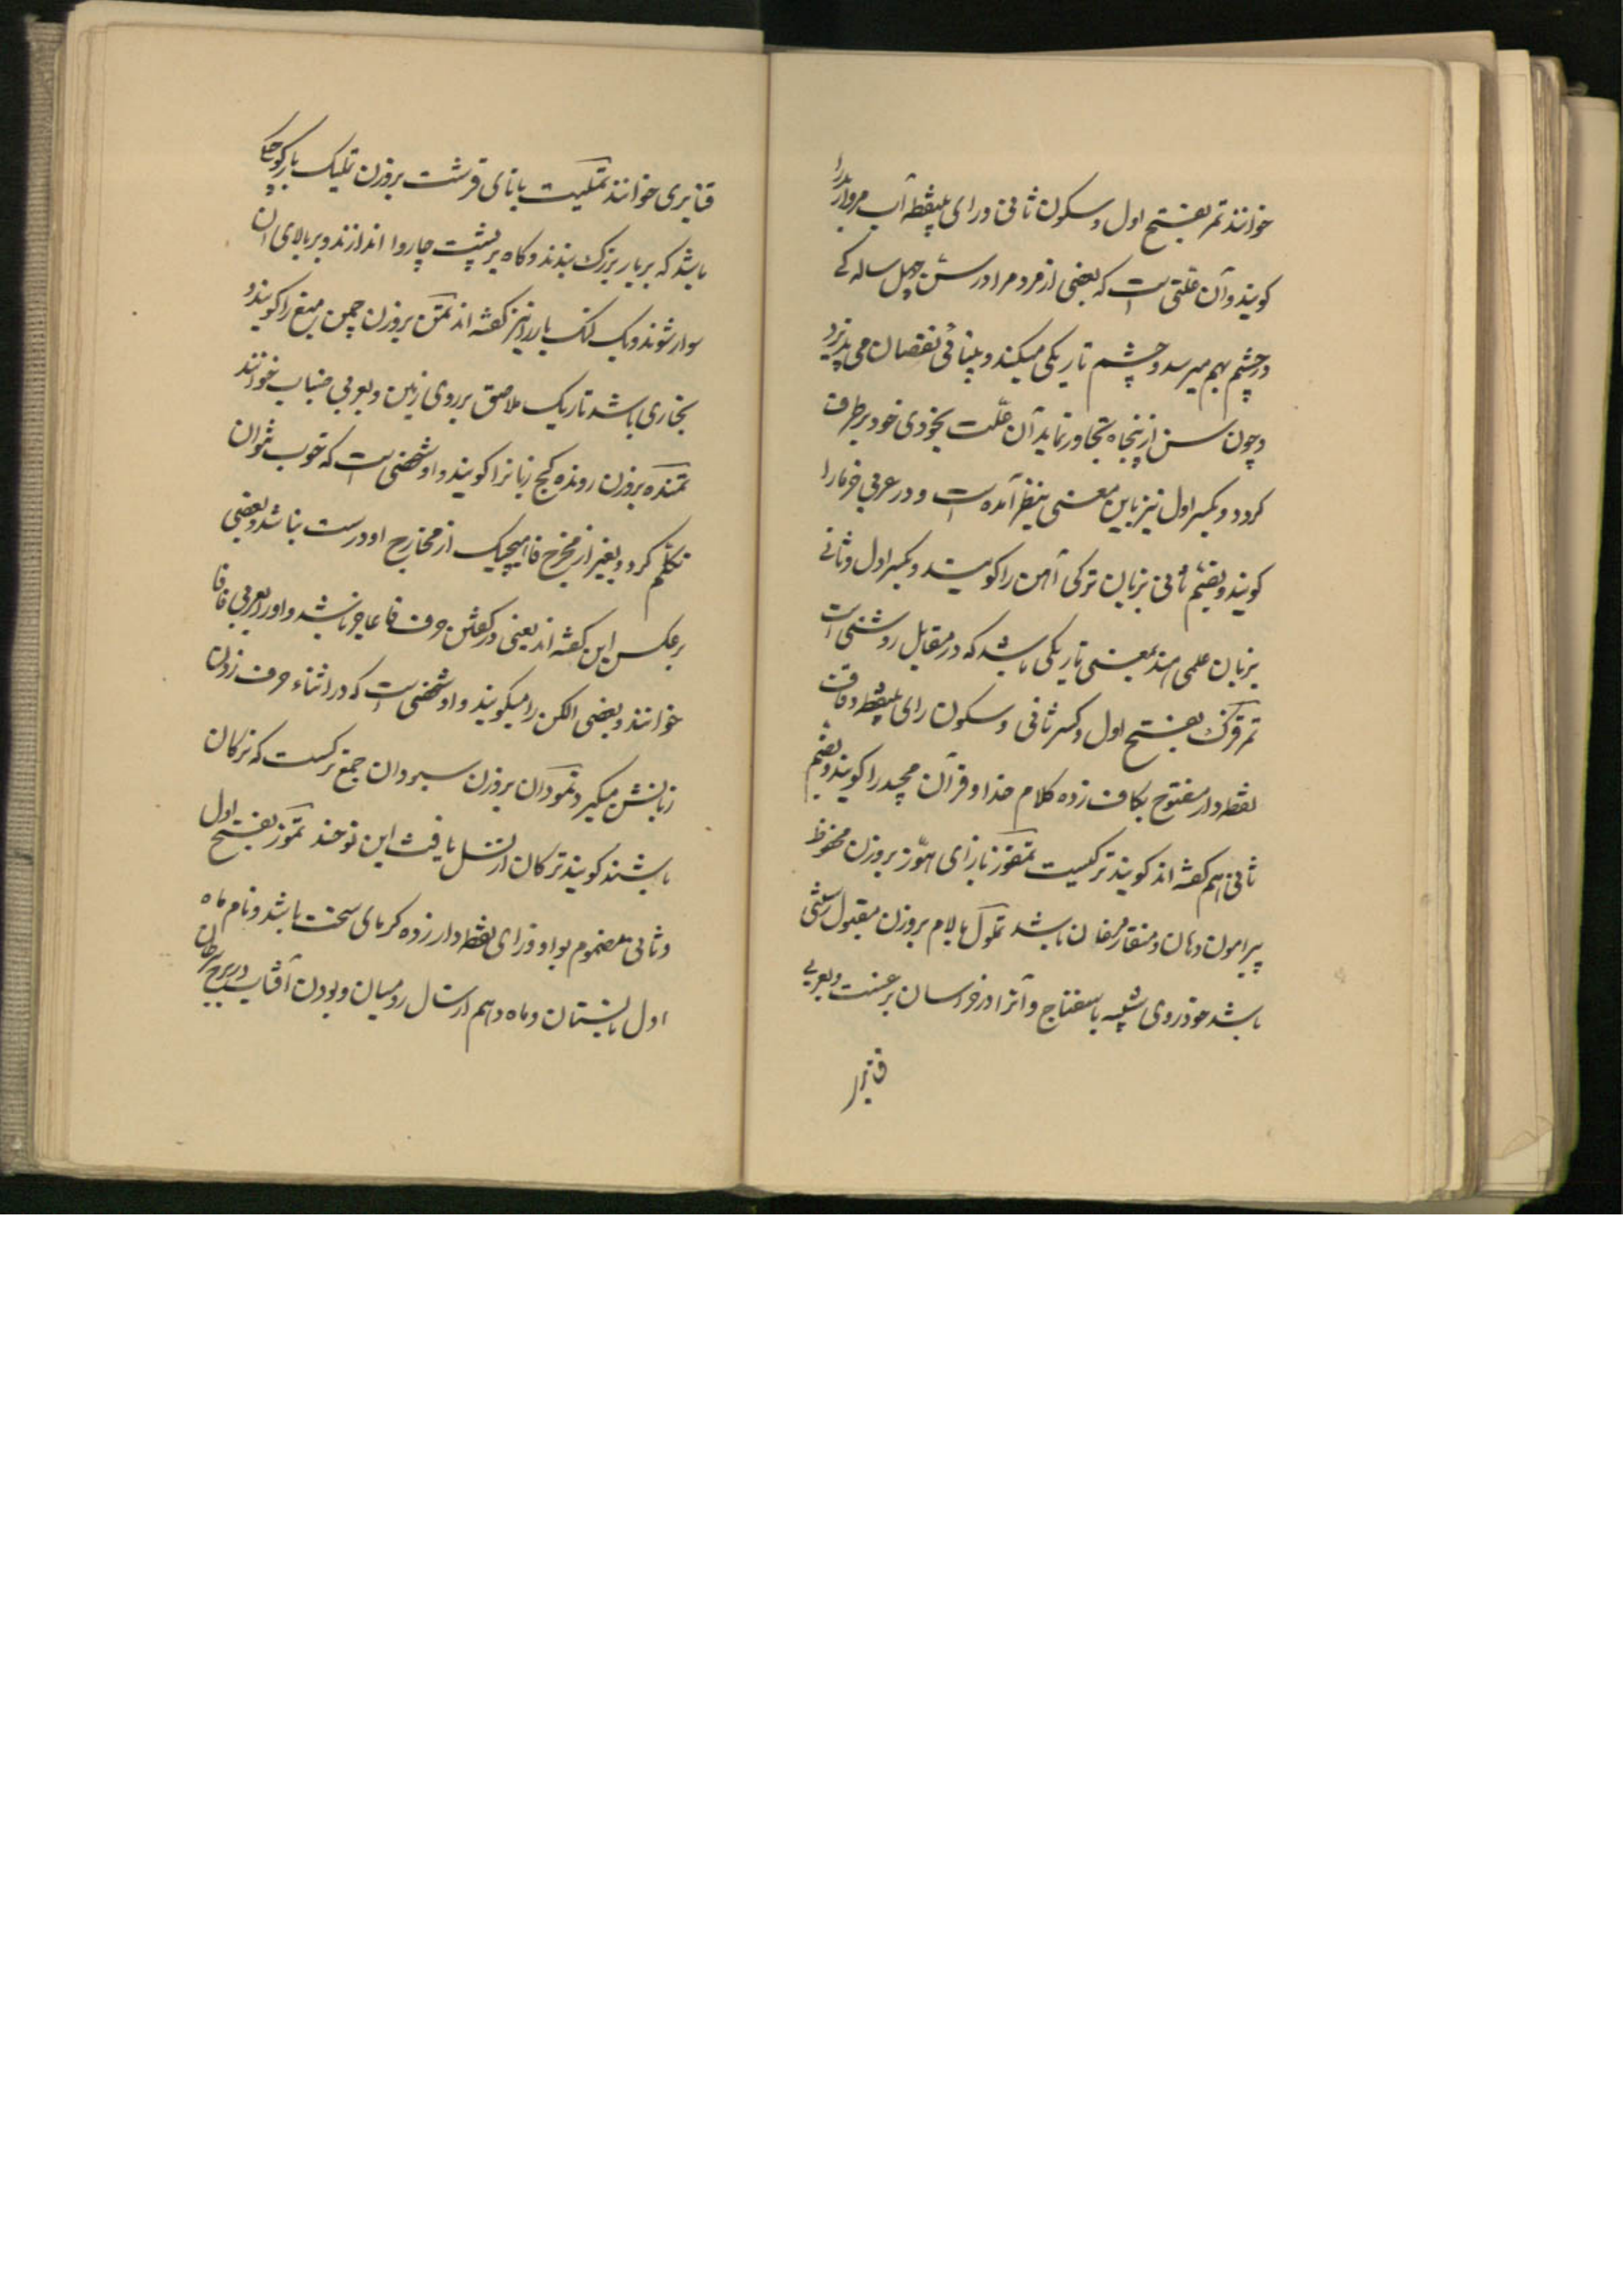 خوانند تمر بفتح اول و سکون ثانی و رای بینقطه آب مروارید را
کویند و آن علتی است که بعضی از مردم را در سن چهل سالکی
در چشم بهم میرسد و چشم تاریکی میکند و بینائی نقصان می پذیرد
و چون سن از پنجاه تجاوز نماید آن علت بخودی خود برطرف
کردد و بکسر اول نیز باین معنی بنظر آمده است و در عربی خرما را
کویند و بضم ثانی بزبان ترکی آهن را کویند و بکسر اول و ثانی
بزبان علمی هند بمعنی تاریکی باشد که در مقابل روشنی است
بفتح اول و کسر ثانی و سکون رای بینقطه و قاف
نقطه دار مفتوح بکاف زده کلام خدا و قرآن مجید را کویند و بضم
ثانی هم کفته اند کویند ترکیست تمغوز بازای هوز بروزن محفوظ
پیرامون دهان و منقار مرغان باشد تملول بالام بروزن مقبول رستنی
باشد خودروی شبیه باسفناج و آنرا در خراسان برغست و بعربی
قنابری
قنابری خوانند تملیت باتای قرشت بروزن تملیک بار کوچکی
باشد که بر بار بزرک بندند و کاه بر پشت چاروا اندازند و بر بالای آن
سوار شوند و یک لنک بار را نیز کفته اند تمن بروزن چمن میغ را کویند و
بخاری باشد تاریک ملاصق بر روی زمین و بعربی ضباب خوانند
تمنده بروزن رونده کج زبانرا کویند و او شخصی است که خوب نتوان
تکلم کرد و بغیر از مخرج فا هیچیک از مخارج او درست نباشد و بعضی
برعکس این کفته اند یعنی در کفتن حرف فا عاجز باشد و او را بعربی فافا
خوانند و بعضی الکن را میکویند و او شخصی است که در اثناء حرف زدن
زبانش میکیرد تمودان بروزن سبودان جمع ترکست که ترکان
باشند کویند ترکان از نسل یافث ابن نوحند تموز بفتح اول
و ثانی مضموم بواو و زای نقطه دار زده کرمای سخت باشد و نام ماه
اول تابستان و ماه دهم از سال رومیان و بودن آفتاب در برج سرطان